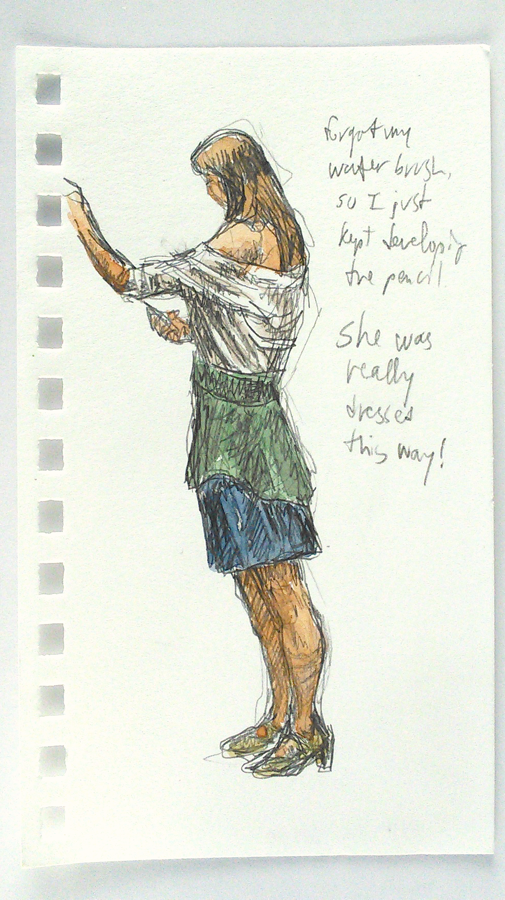 forgot my
water brush,
so I just
kept developing
the pencil.
She was
really
dresses
this way!